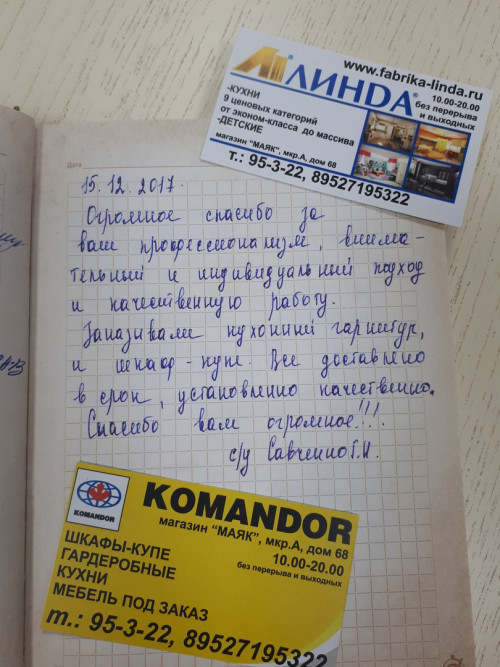 www.fabrika-linda.ru
ЛИНДА®
10.00-20.00
без перерыва
и выходных
-КУХНИ
9 ценовых категорий
от эконом-класса до массива
-ДЕТСКИЕ
магазин "МАЯК", мкр.А, дом 68
т.: 95-3-22, 89527195322
Дата
15.12.2017.
Огромное спасибо за
ваш профессионализм, внима-
тельный и индивидуальный подход
и качественную работу.
Заказывали кухонный гарнитур,
и шкаф-купе. Все доставлено
в срок, установленно качественно.
Спасибо вам огромное!!!.
с/у Савченко Г.Н.
KOMANDOR
KOMANDOR
магазин "МАЯК", мкр.А, дом 68
10.00-20.00
без перерыва и выходных
ШКАФЫ-КУПЕ
ГАРДЕРОБНЫЕ
КУХНИ
МЕБЕЛЬ ПОД ЗАКАЗ
т.: 95-3-22, 89527195322